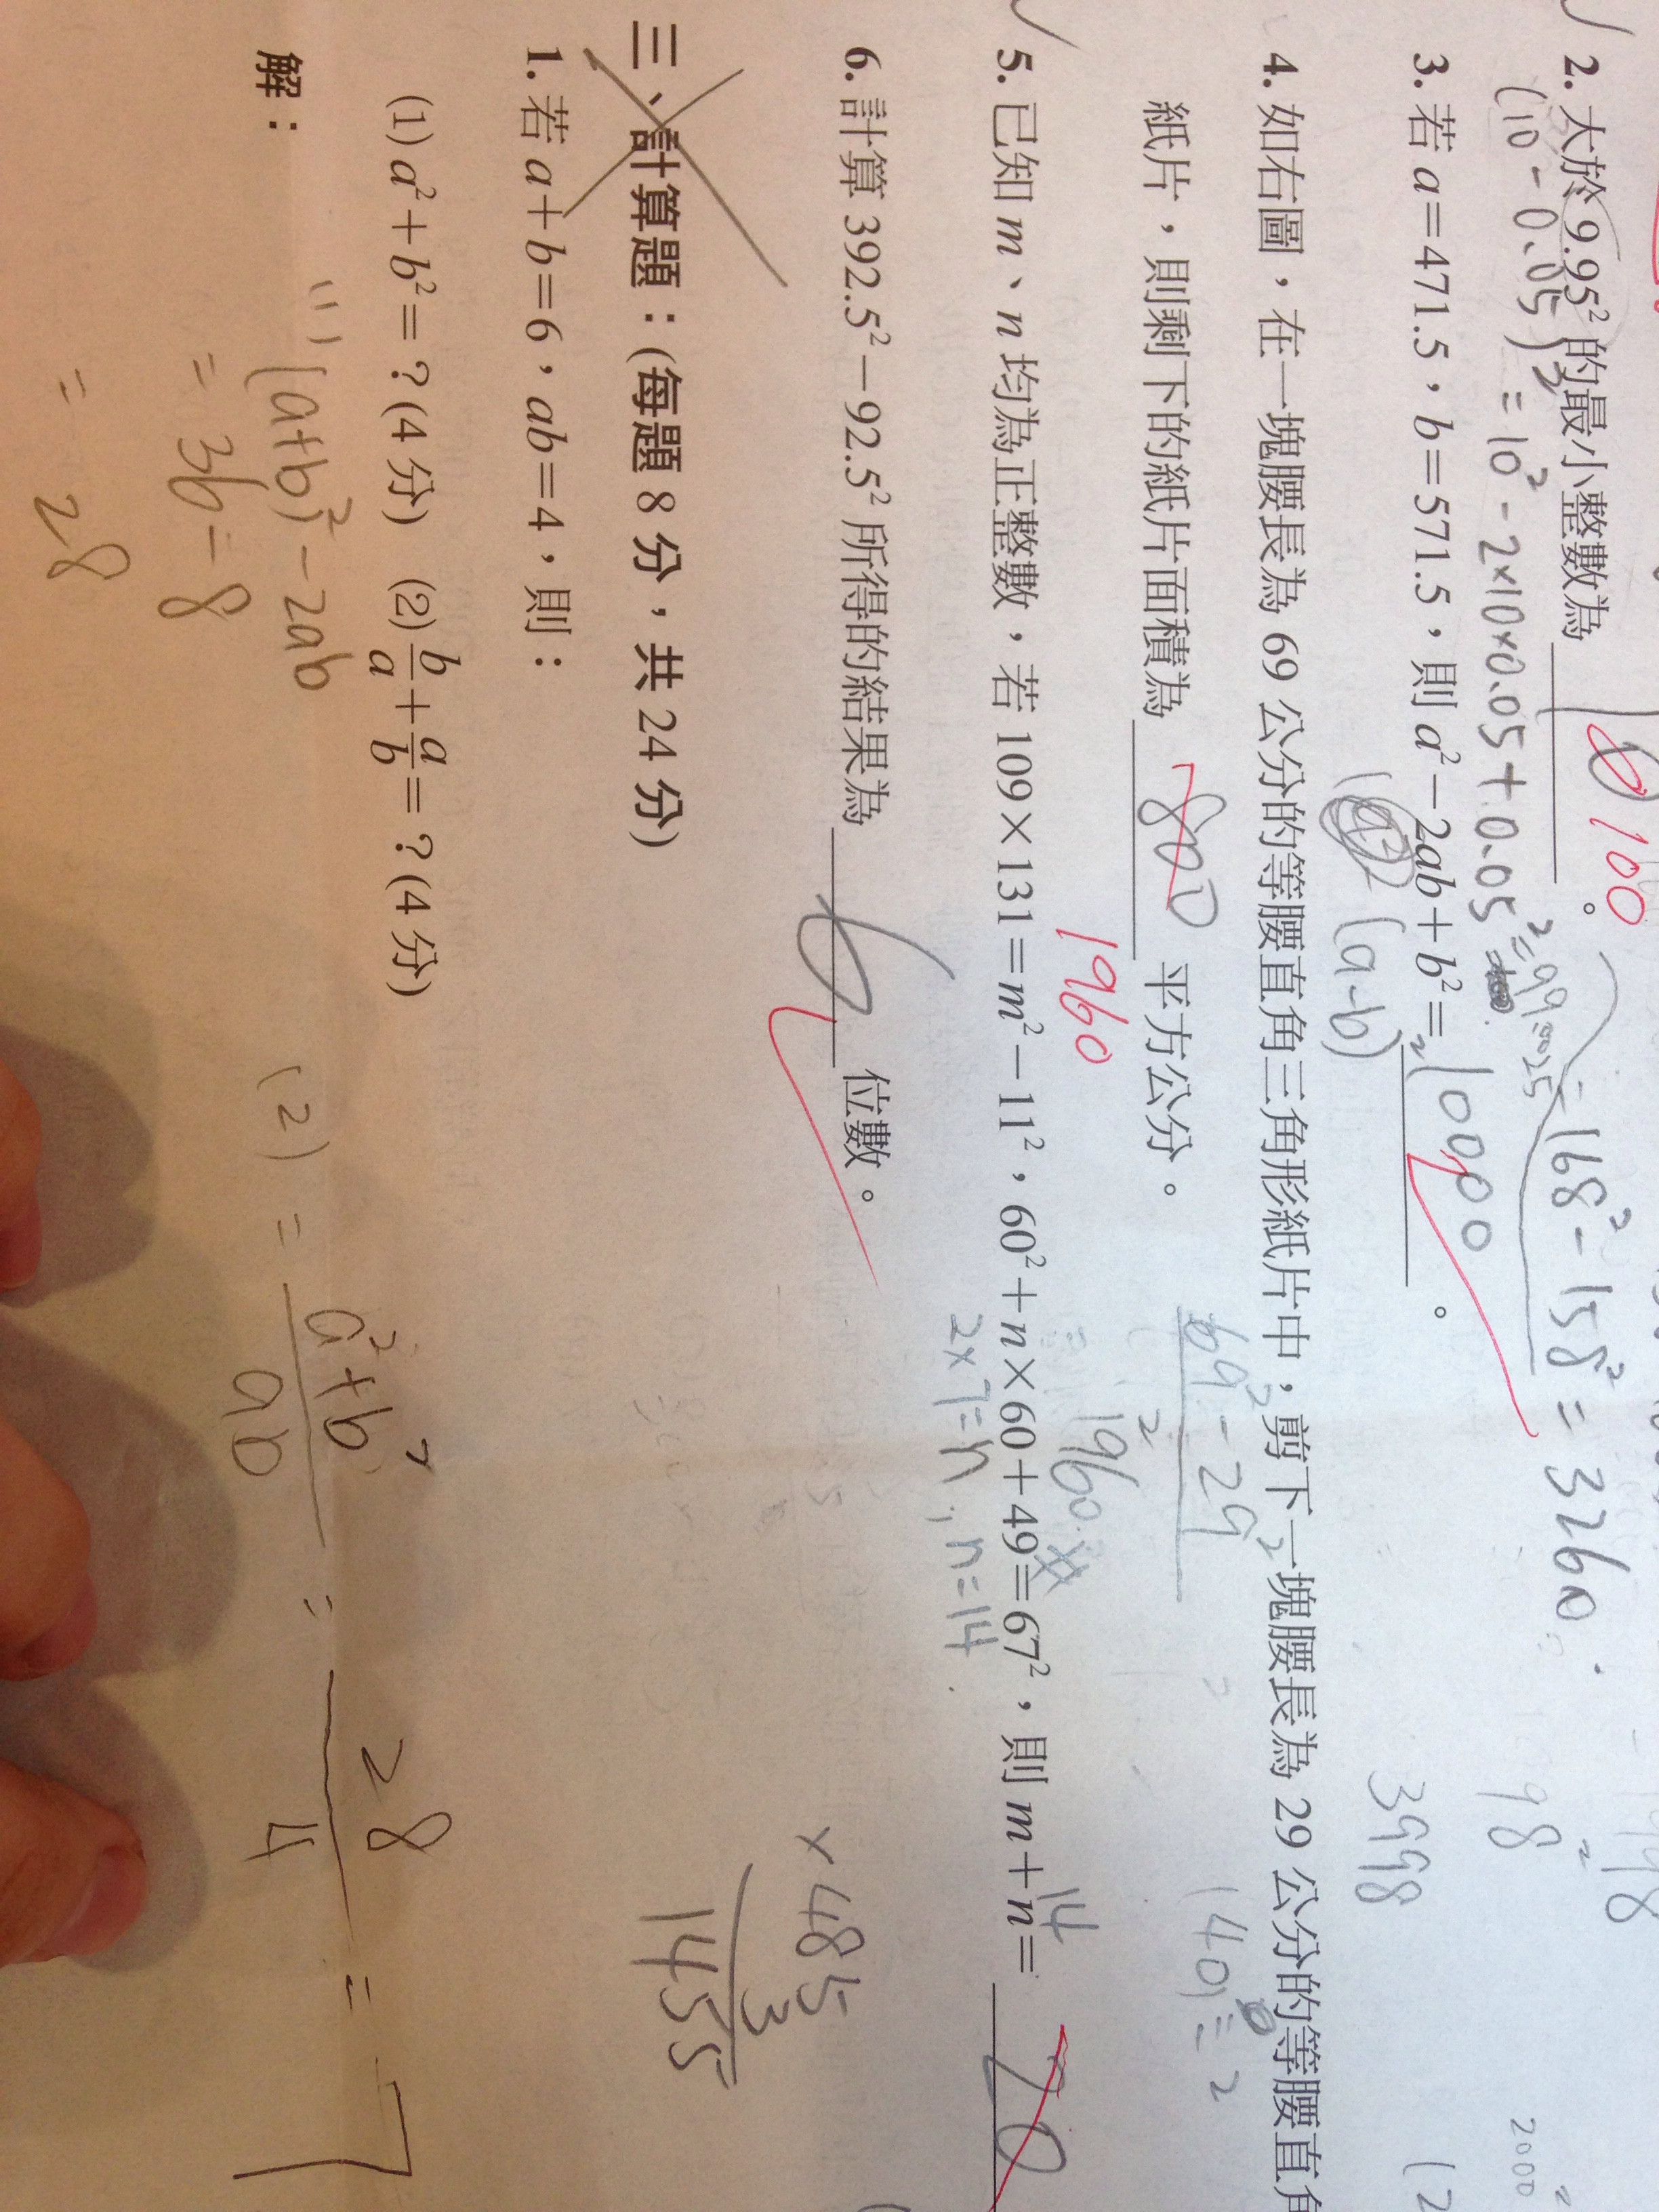 2. 大於 9.95² 的最小整數為 100 。
(10-0.05)² = 10² - 2×10×0.05 + 0.05² = 99.0025
168² - 158² = 3260
98²
3. 若 a=471.5,b=571.5,則 a²-2ab+b²= 10000 。
(a-b)²
3998
4. 如右圖,在一塊腰長為 69 公分的等腰直角三角形紙片中,剪下一塊腰長為 29 公分的等腰直角
紙片,則剩下的紙片面積為 800 平方公分。
69² - 29²
2
1960
1960
5. 已知 m、n 均為正整數,若 109×131=m²-11²,60²+n×60+49=67²,則 m+n= 20
14
2×7=n , n=14
6. 計算 392.5²-92.5² 所得的結果為 6 位數。
×485
3
1455
三、計算題:(每題 8 分,共 24 分)
1. 若 a+b=6,ab=4,則:
(1) a²+b²=?(4 分) (2) b/a + a/b =?(4 分)
解:
(1) (a+b)² - 2ab
= 36 - 8
= 28
(2) = a²+b² / ab = 28 / 4 = 7